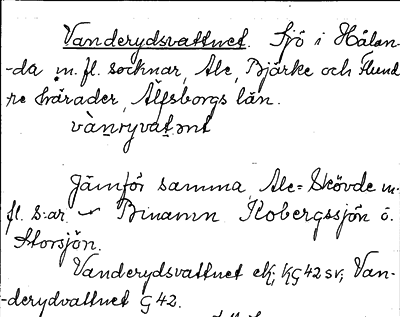 Vanderydsvattnet. Sjö i Hålan-
-da m. fl. socknar, Ale, Bjärke och Flund
re härader, Älfsborgs län.
vànryvat̬ənt
Jämför samma, Ale-Skövde m.
fl. s:ar. ~ Binamn Kobergssjön o.
Storsjön.
Vanderydsvattnet ek; kG 42 sv; Van-
-derydvattnet G 42.